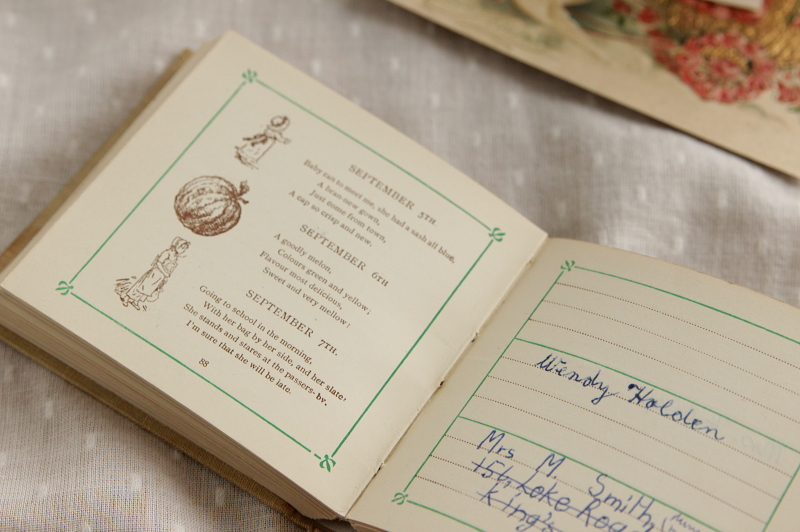 SEPTEMBER 5TH
Baby ran to meet me, she had a sash all blue,
A bran new gown,
Just come from town,
A cap so crisp and new.
SEPTEMBER 6TH
A goodly melon,
Colours green and yellow;
Flavour most delicious,
Sweet and very mellow!
SEPTEMBER 7TH.
Going to school in the morning,
With her bag by her side, and her slate,
She stands and stares at the passers-by.
I'm sure that she will be late.
88
Wendy Holden
Mrs M. Smith
156 Loke Road
King's